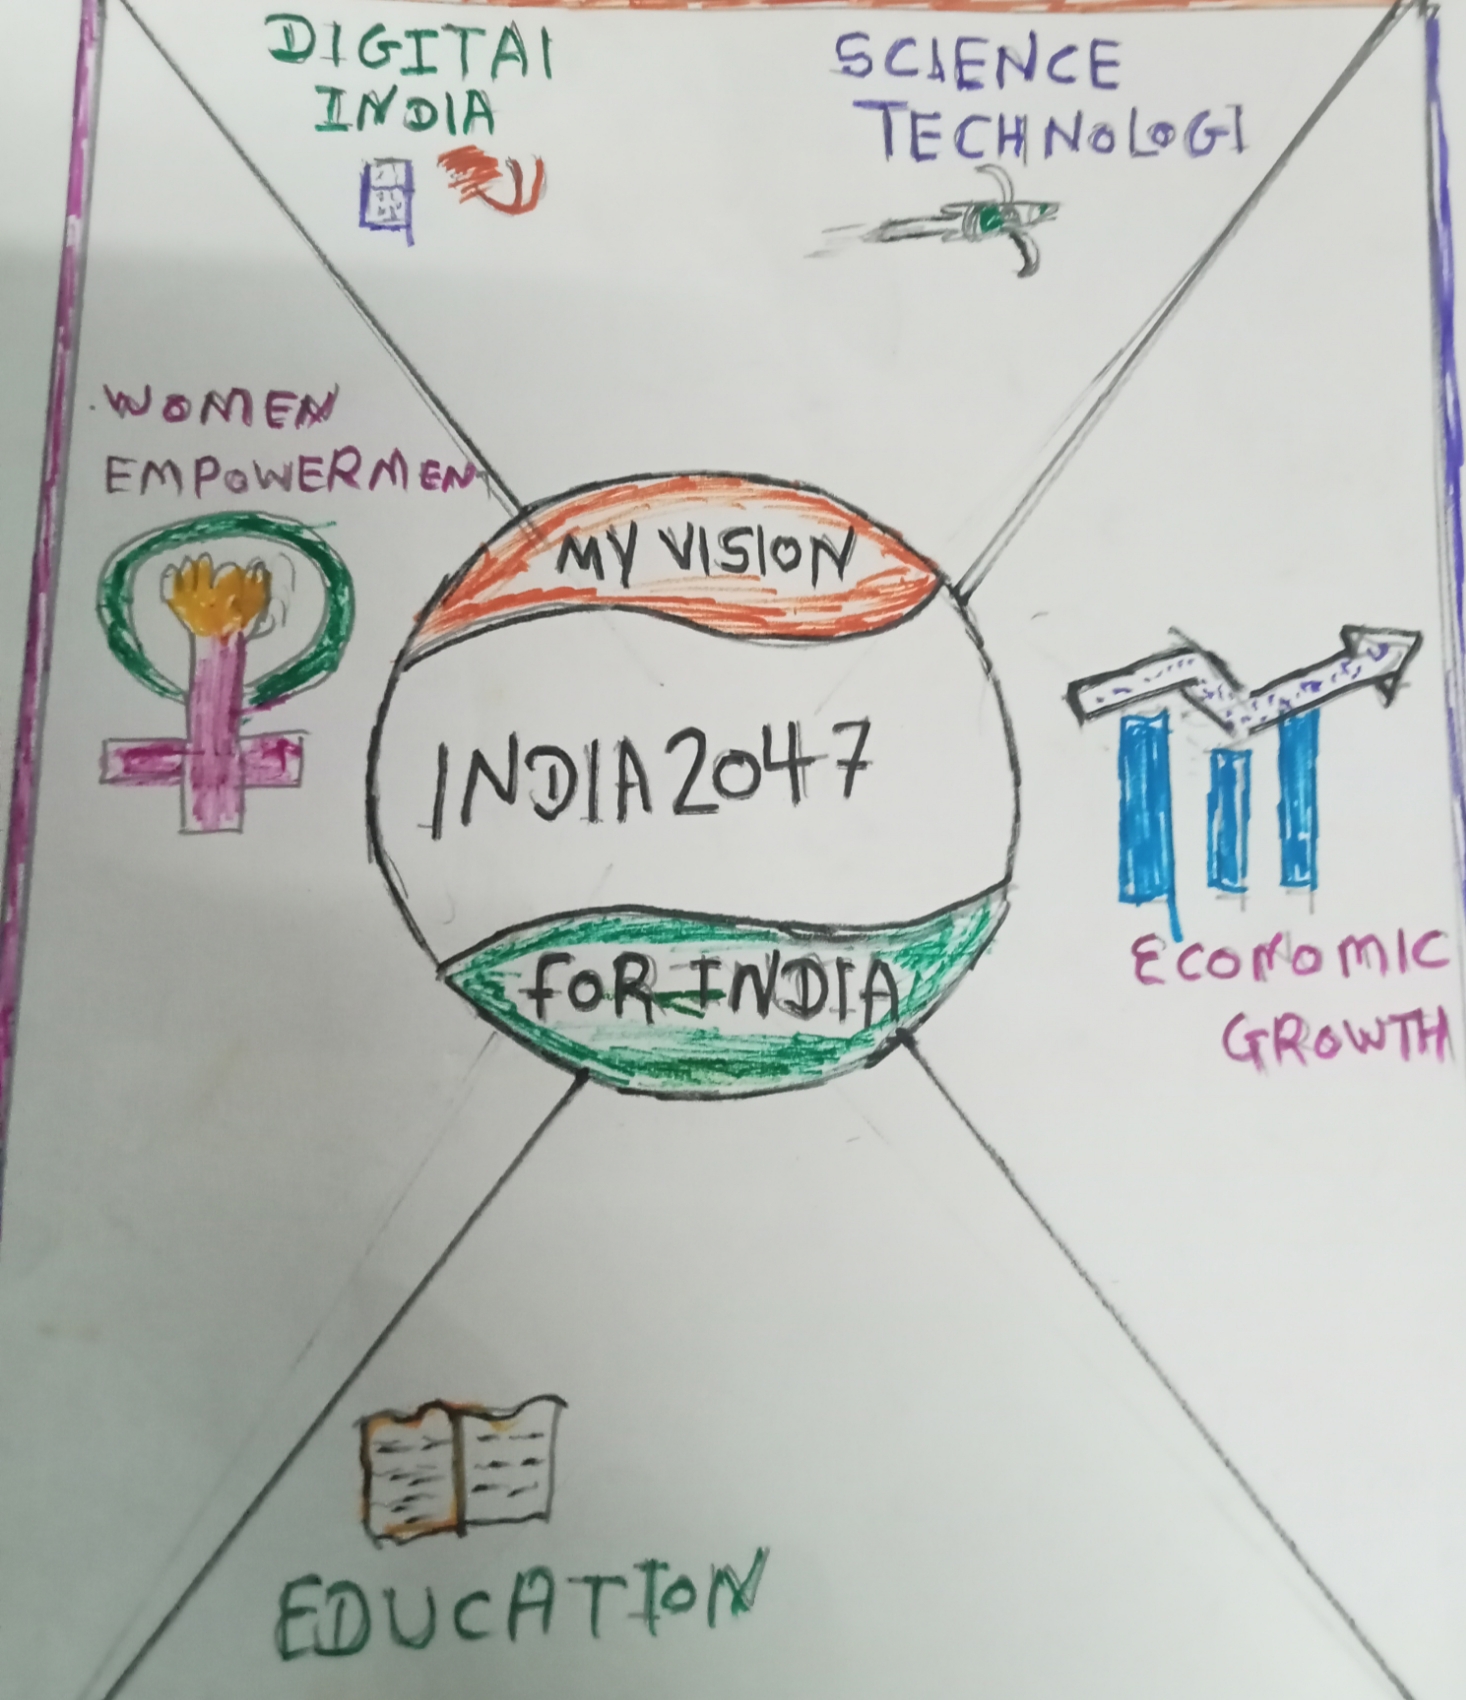 DIGITAl
INDIA
SCIENCE
TECHNOLOGI
WOMEN
EMPOWERMENT
MY VISION
INDIA 2047
FOR INDIA
ECONOMIC
GROWTH
EDUCATION